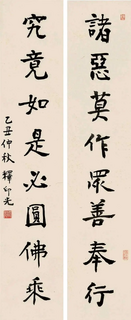 諸惡莫作眾善奉行
究竟如是必圓佛乘
乙丑仲秋 釋印光